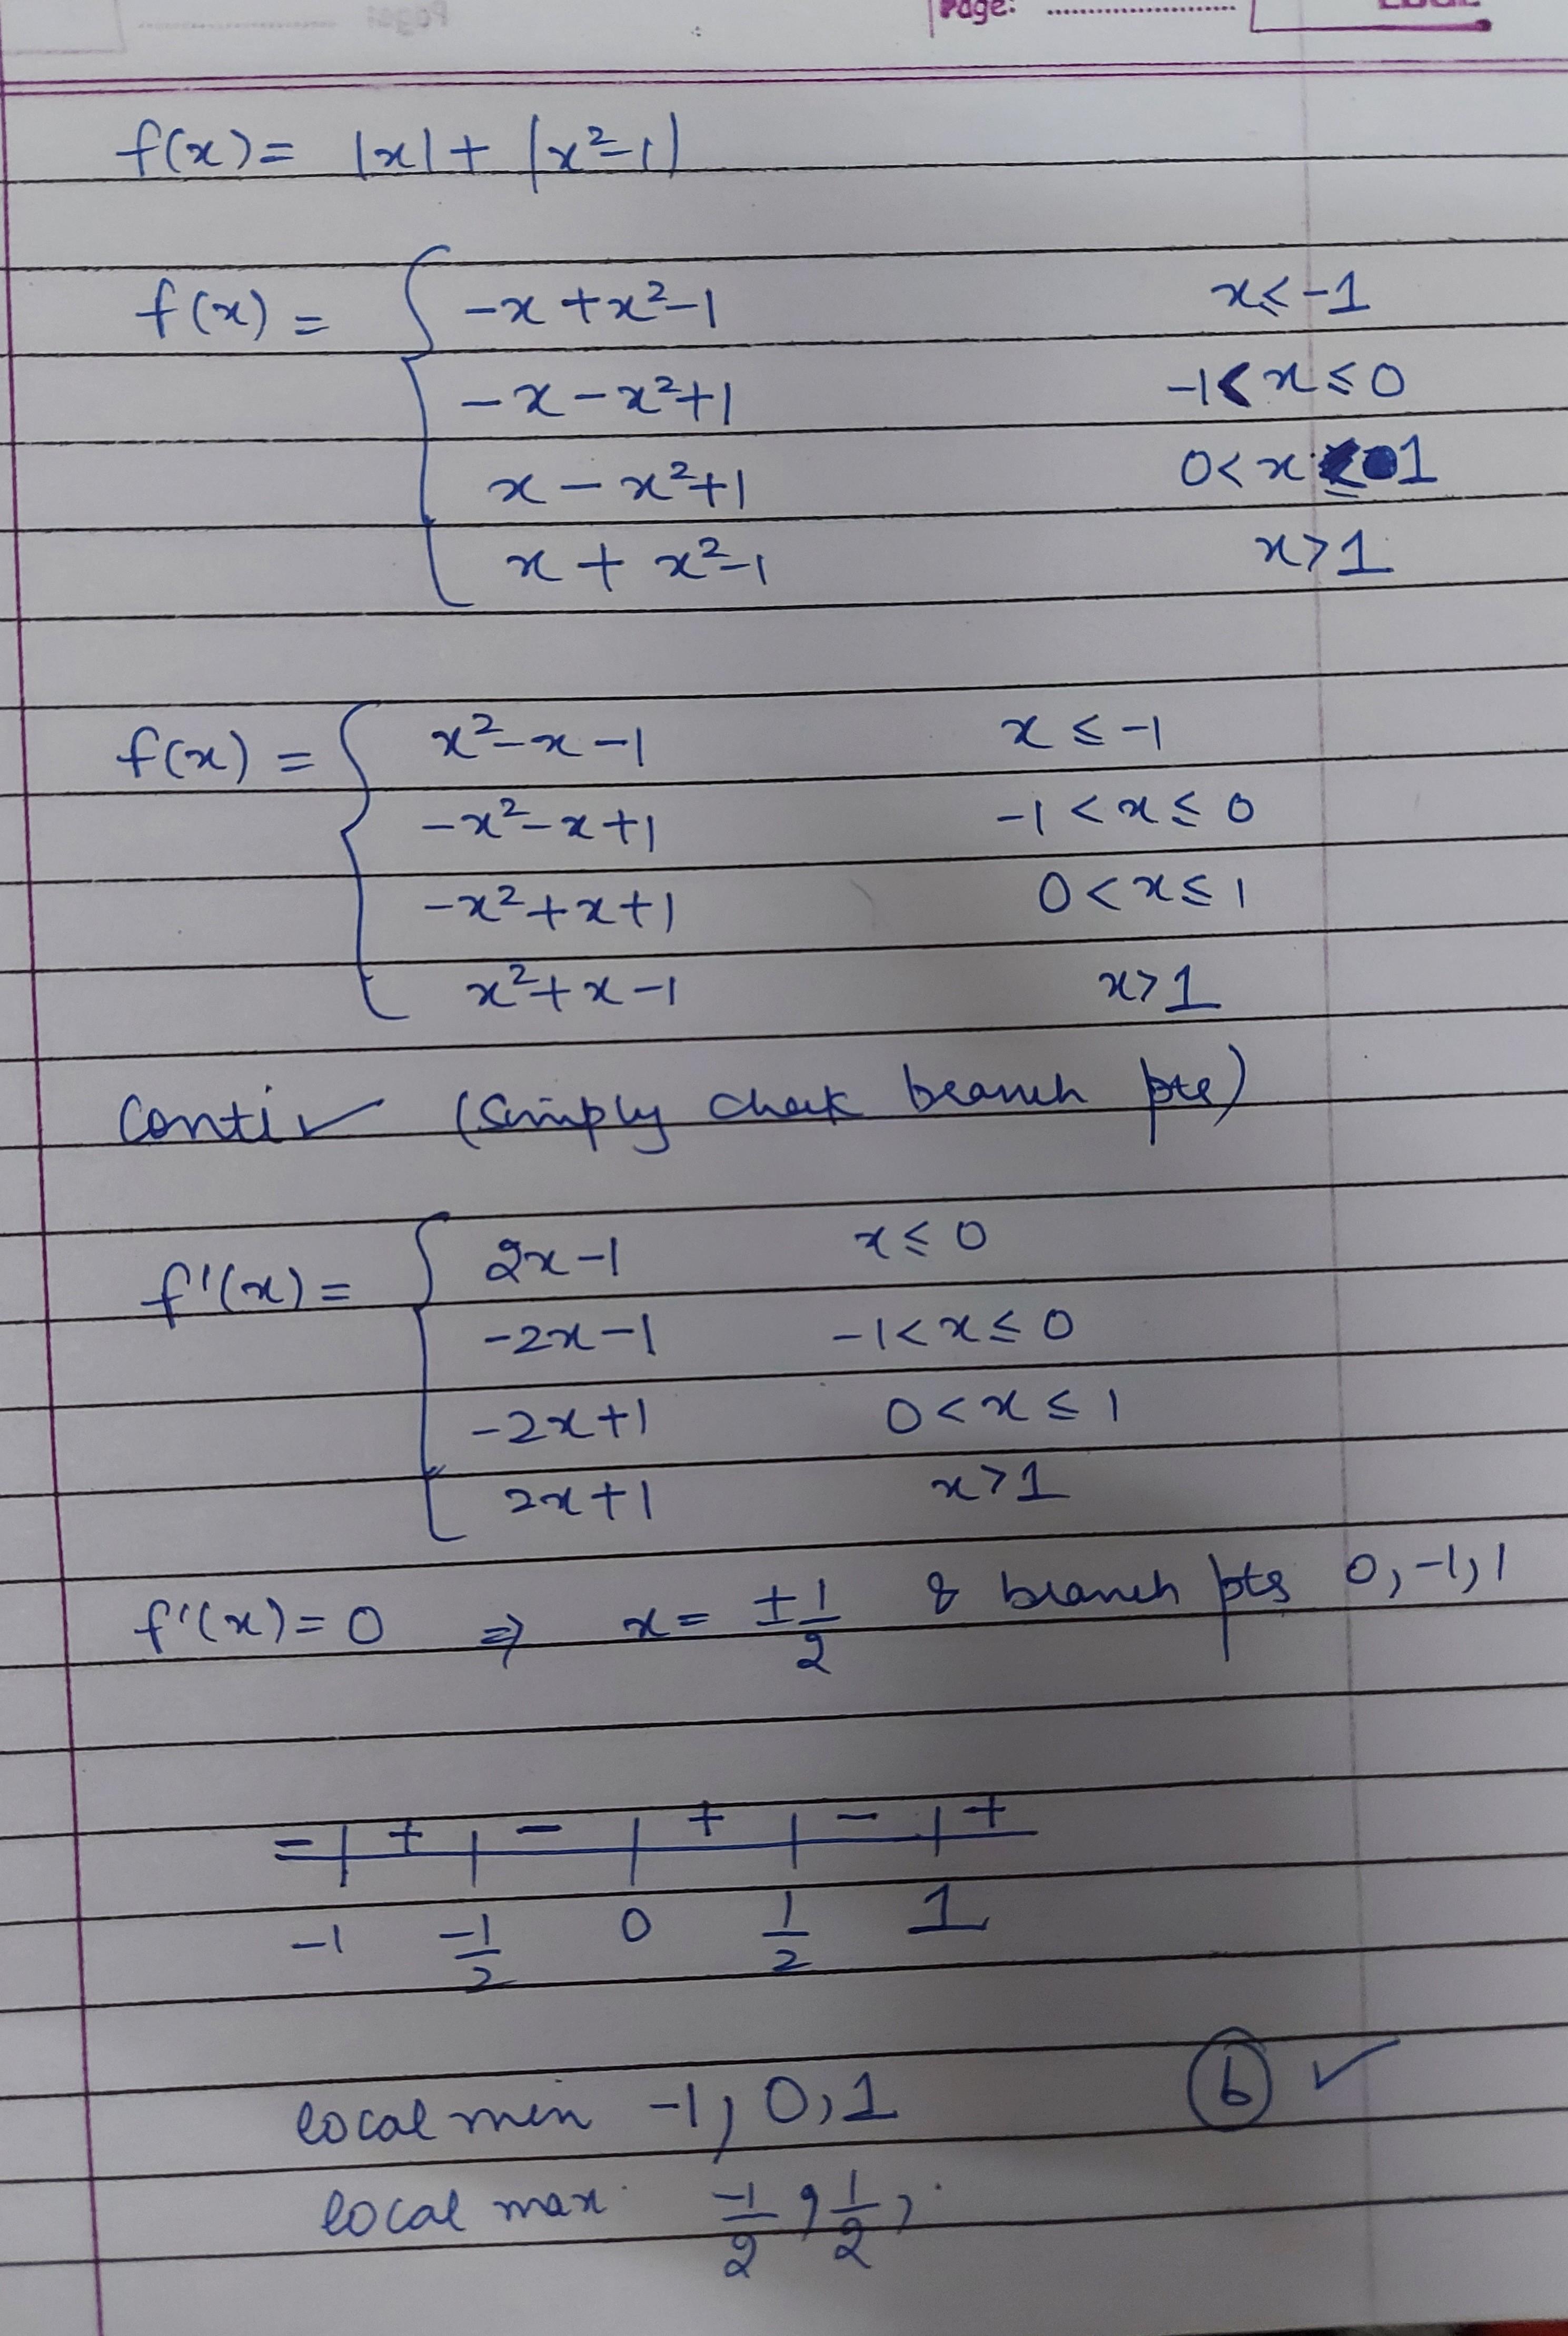 Page: ....................
f(x) = |x| + |x²-1|
f(x) = { -x + x²-1 x≤-1
-x - x²+1 -1< x ≤ 0
x - x²+1 0< x ≤ 1
x + x²-1 x>1
f(x) = { x²-x-1 x ≤ -1
-x²-x+1 -1 < x ≤ 0
-x²+x+1 0 < x ≤ 1
x²+x-1 x>1
Conti ✓ (Simply check branch pts)
f'(x) = { 2x-1 x ≤ 0
-2x-1 -1< x ≤ 0
-2x+1 0 < x ≤ 1
2x+1 x>1
f'(x) = 0 ⇒ x = ± 1/2 & branch pts 0, -1, 1
- | + | - | + | - | +
-1 -1/2 0 1/2 1
local min -1, 0, 1 (b) ✓
local max. -1/2, 1/2,